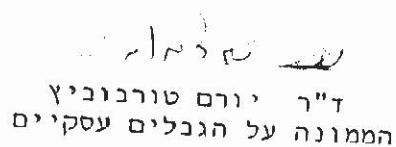 ד"ר יורם טורבוביץ
הממונה על הגבלים עסקיים